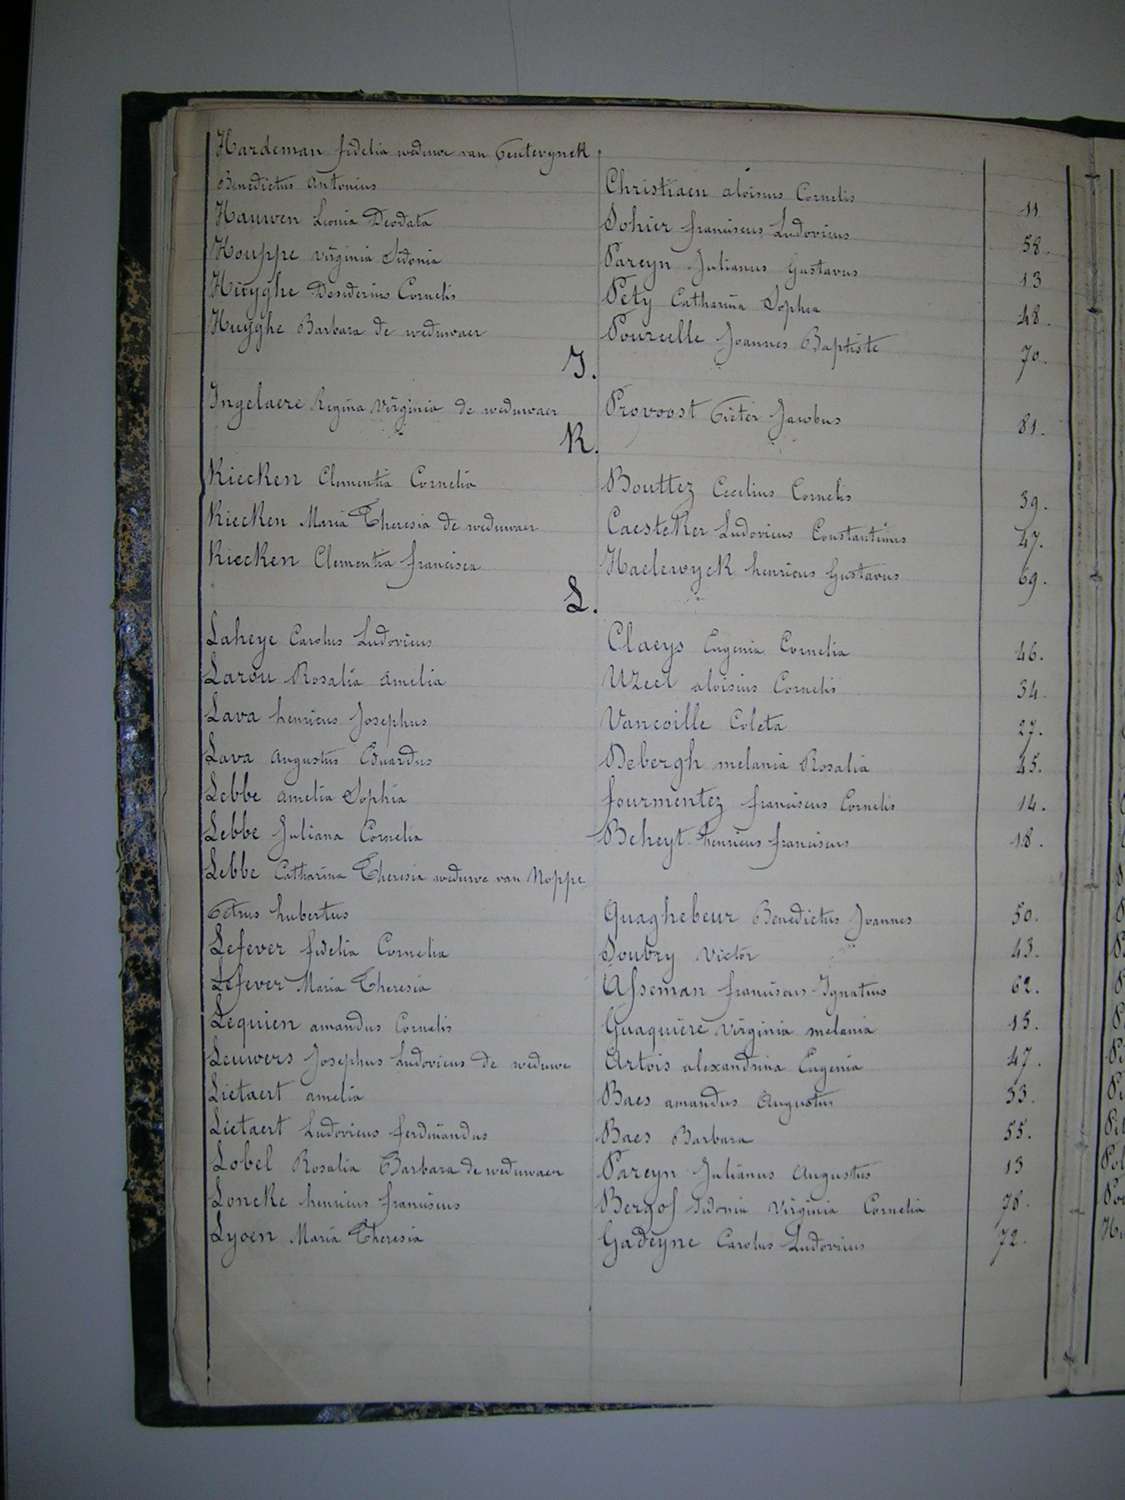 Hardeman fidelia weduwe van Centevynck
Benedictus Antonius Christiaen aloisius Cornelis 11
Hauwen Leonia Deodata Sohier franciscus Ludovicus 58.
Houppe virginia Sidonia Pareyn Julianus Gustavus 13
Huyghe Desiderius Cornelis Pety Catharina Sophia 48.
Huyghe Barbara de weduwaer Pourcelle Joannes Baptiste 70.
I.
Ingelaere Regina Virginia de weduwaer Provoost Pieter Jacobus 81.
K.
Kiecken Clementia Cornelia Bouttez Cecilius Cornelis 39.
Kiecken Maria Theresia de weduwaer Caesteker Ludovicus Constantinus 47.
Kiecken Clementia francisca Haelewyck henricus Gustavus 69.
L.
Laheye Carolus Ludovicus Claeys Eugenia Cornelia 46.
Larou Rosalia amelia Uzeel aloisius Cornelis 34.
Lava henricus Josephus Vancoille Coleta 27.
Lava Augustus Eduardus Debergh melania Rosalia 45.
Lebbe amelia Sophia fourmentez franciscus Cornelis 14.
Lebbe Juliana Cornelia Beheyt henricus franciscus 18.
Lebbe Catharina Theresia weduwe van Noppe
Petrus hubertus Quaghebeur Benedictus Joannes 50.
Lefever fidelia Cornelia Soubry Victor 43.
Lefever Maria Theresia Asseman franciscus Ignatius 62.
Lequien amandus Cornelis Quaquiere Virginia melania 15.
Leuwers Josephus Ludovicus de weduwe Artois alexandrina Eugenia 47.
Lietaert amelia Baes amandus Augustus 33.
Lietaert Ludovicus ferdinandus Baes Barbara 55.
Lobel Rosalia Barbara de weduwaer Pareyn Julianus Augustus 13
Loncke henricus franciscus Bergof Sidonia Virginia Cornelia 78.
Lyoen Maria Theresia Gadeyne Carolus Ludovicus 72.